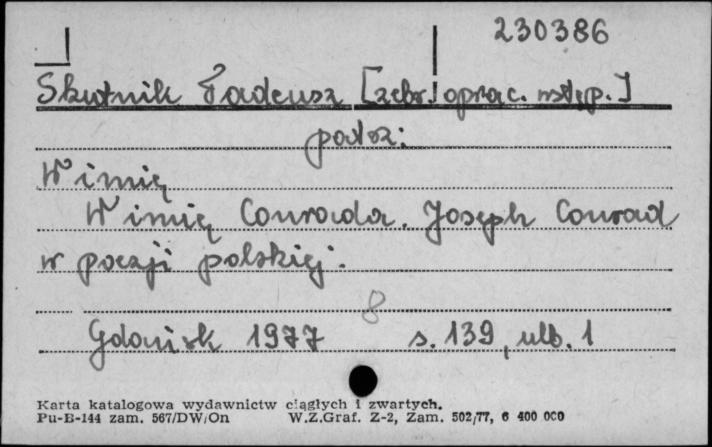 230386
Skutnik Tadeusz [zebr. oprac. wstęp.]
patrz:
W imię
W imię Conrada. Joseph Conrad
w poezji polskiej.
8
Gdańsk 1977 s. 139, ulb. 1
Karta katalogowa wydawnictw ciągłych i zwartych.
Pu-B-144 zam. 567/DW/On W.Z.Graf. Z-2, Zam. 502/77, 6 400 000